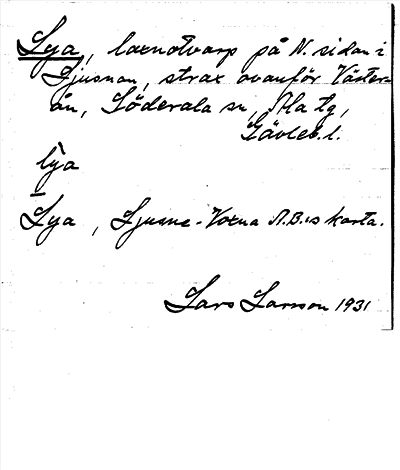 Lya, laxnotvarp på N. sidan i
Ljusnan, strax ovanför Väster-
ån, Söderala sn, Ala tg,
Gävleb. l.
lỳa
Lya, Ljusne-Voxna A.B:s karta.
Lars Larsson 1931